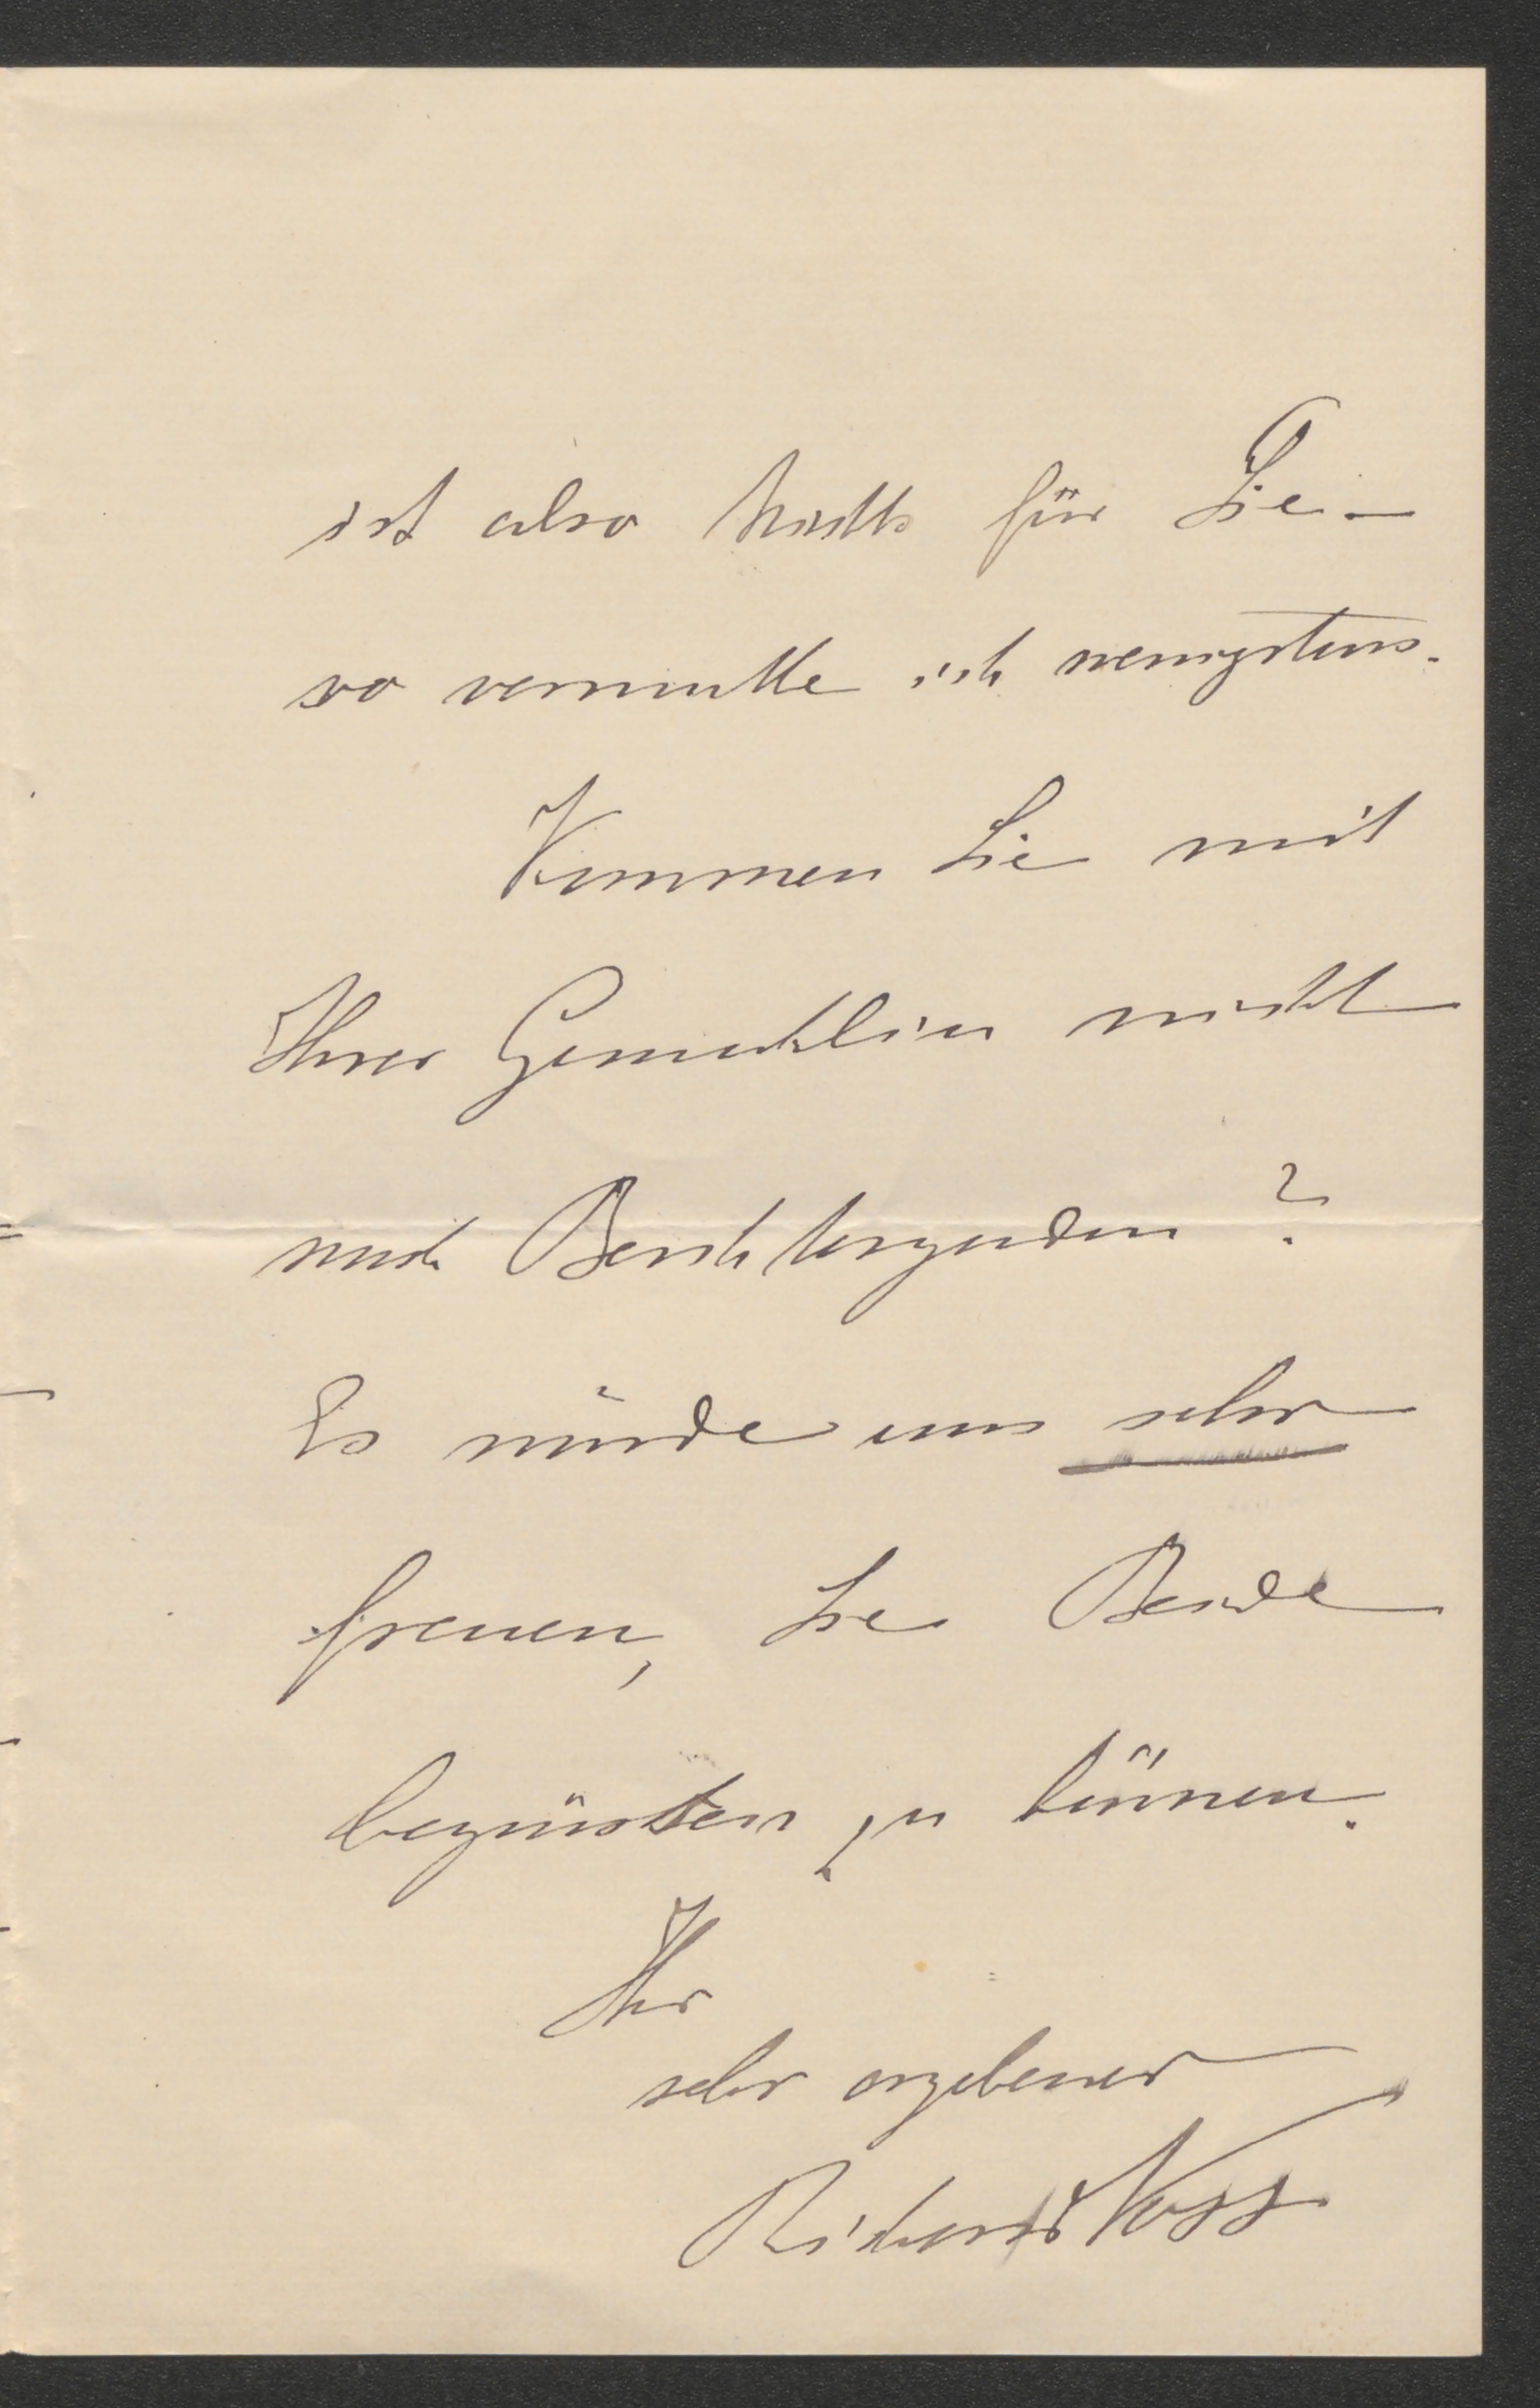 ist also Nichts für Sie –
so vermuthe ich wenigstens.
Kommen Sie mit
Ihrer Gemahlin nicht
nach Berchtesgaden?
Es würde uns sehr
freuen, Sie Beide
begrüssen zu können.
Ihr
sehr ergebener
Richard Voss